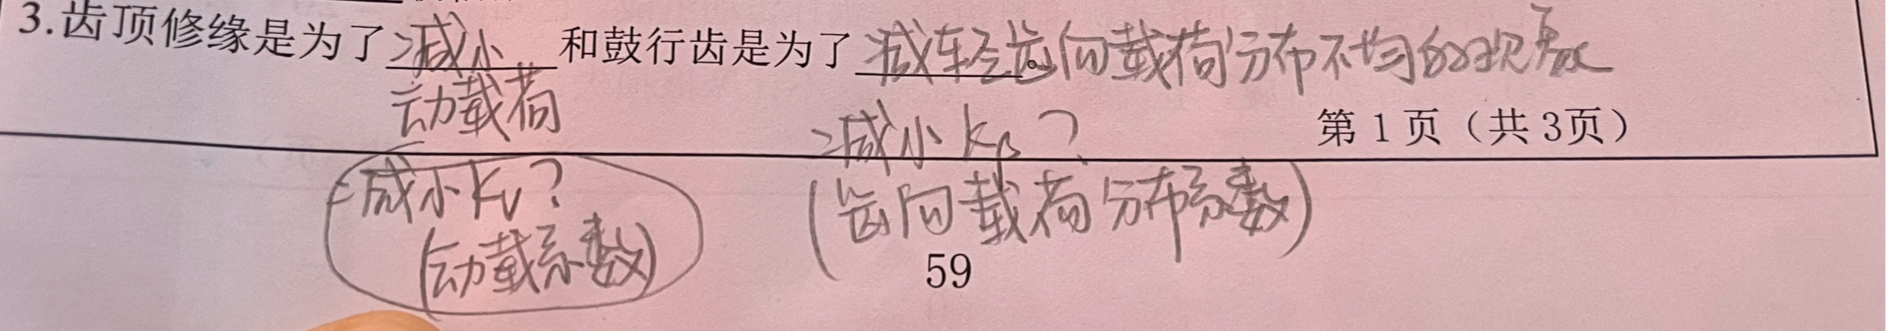 3.齿顶修缘是为了减小 和鼓行齿是为了减轻齿向载荷分布不均的现象。
动载荷
减小Kβ？
第1页（共3页）
减小Kv？
(齿向载荷分布系数)
(动载系数)
59